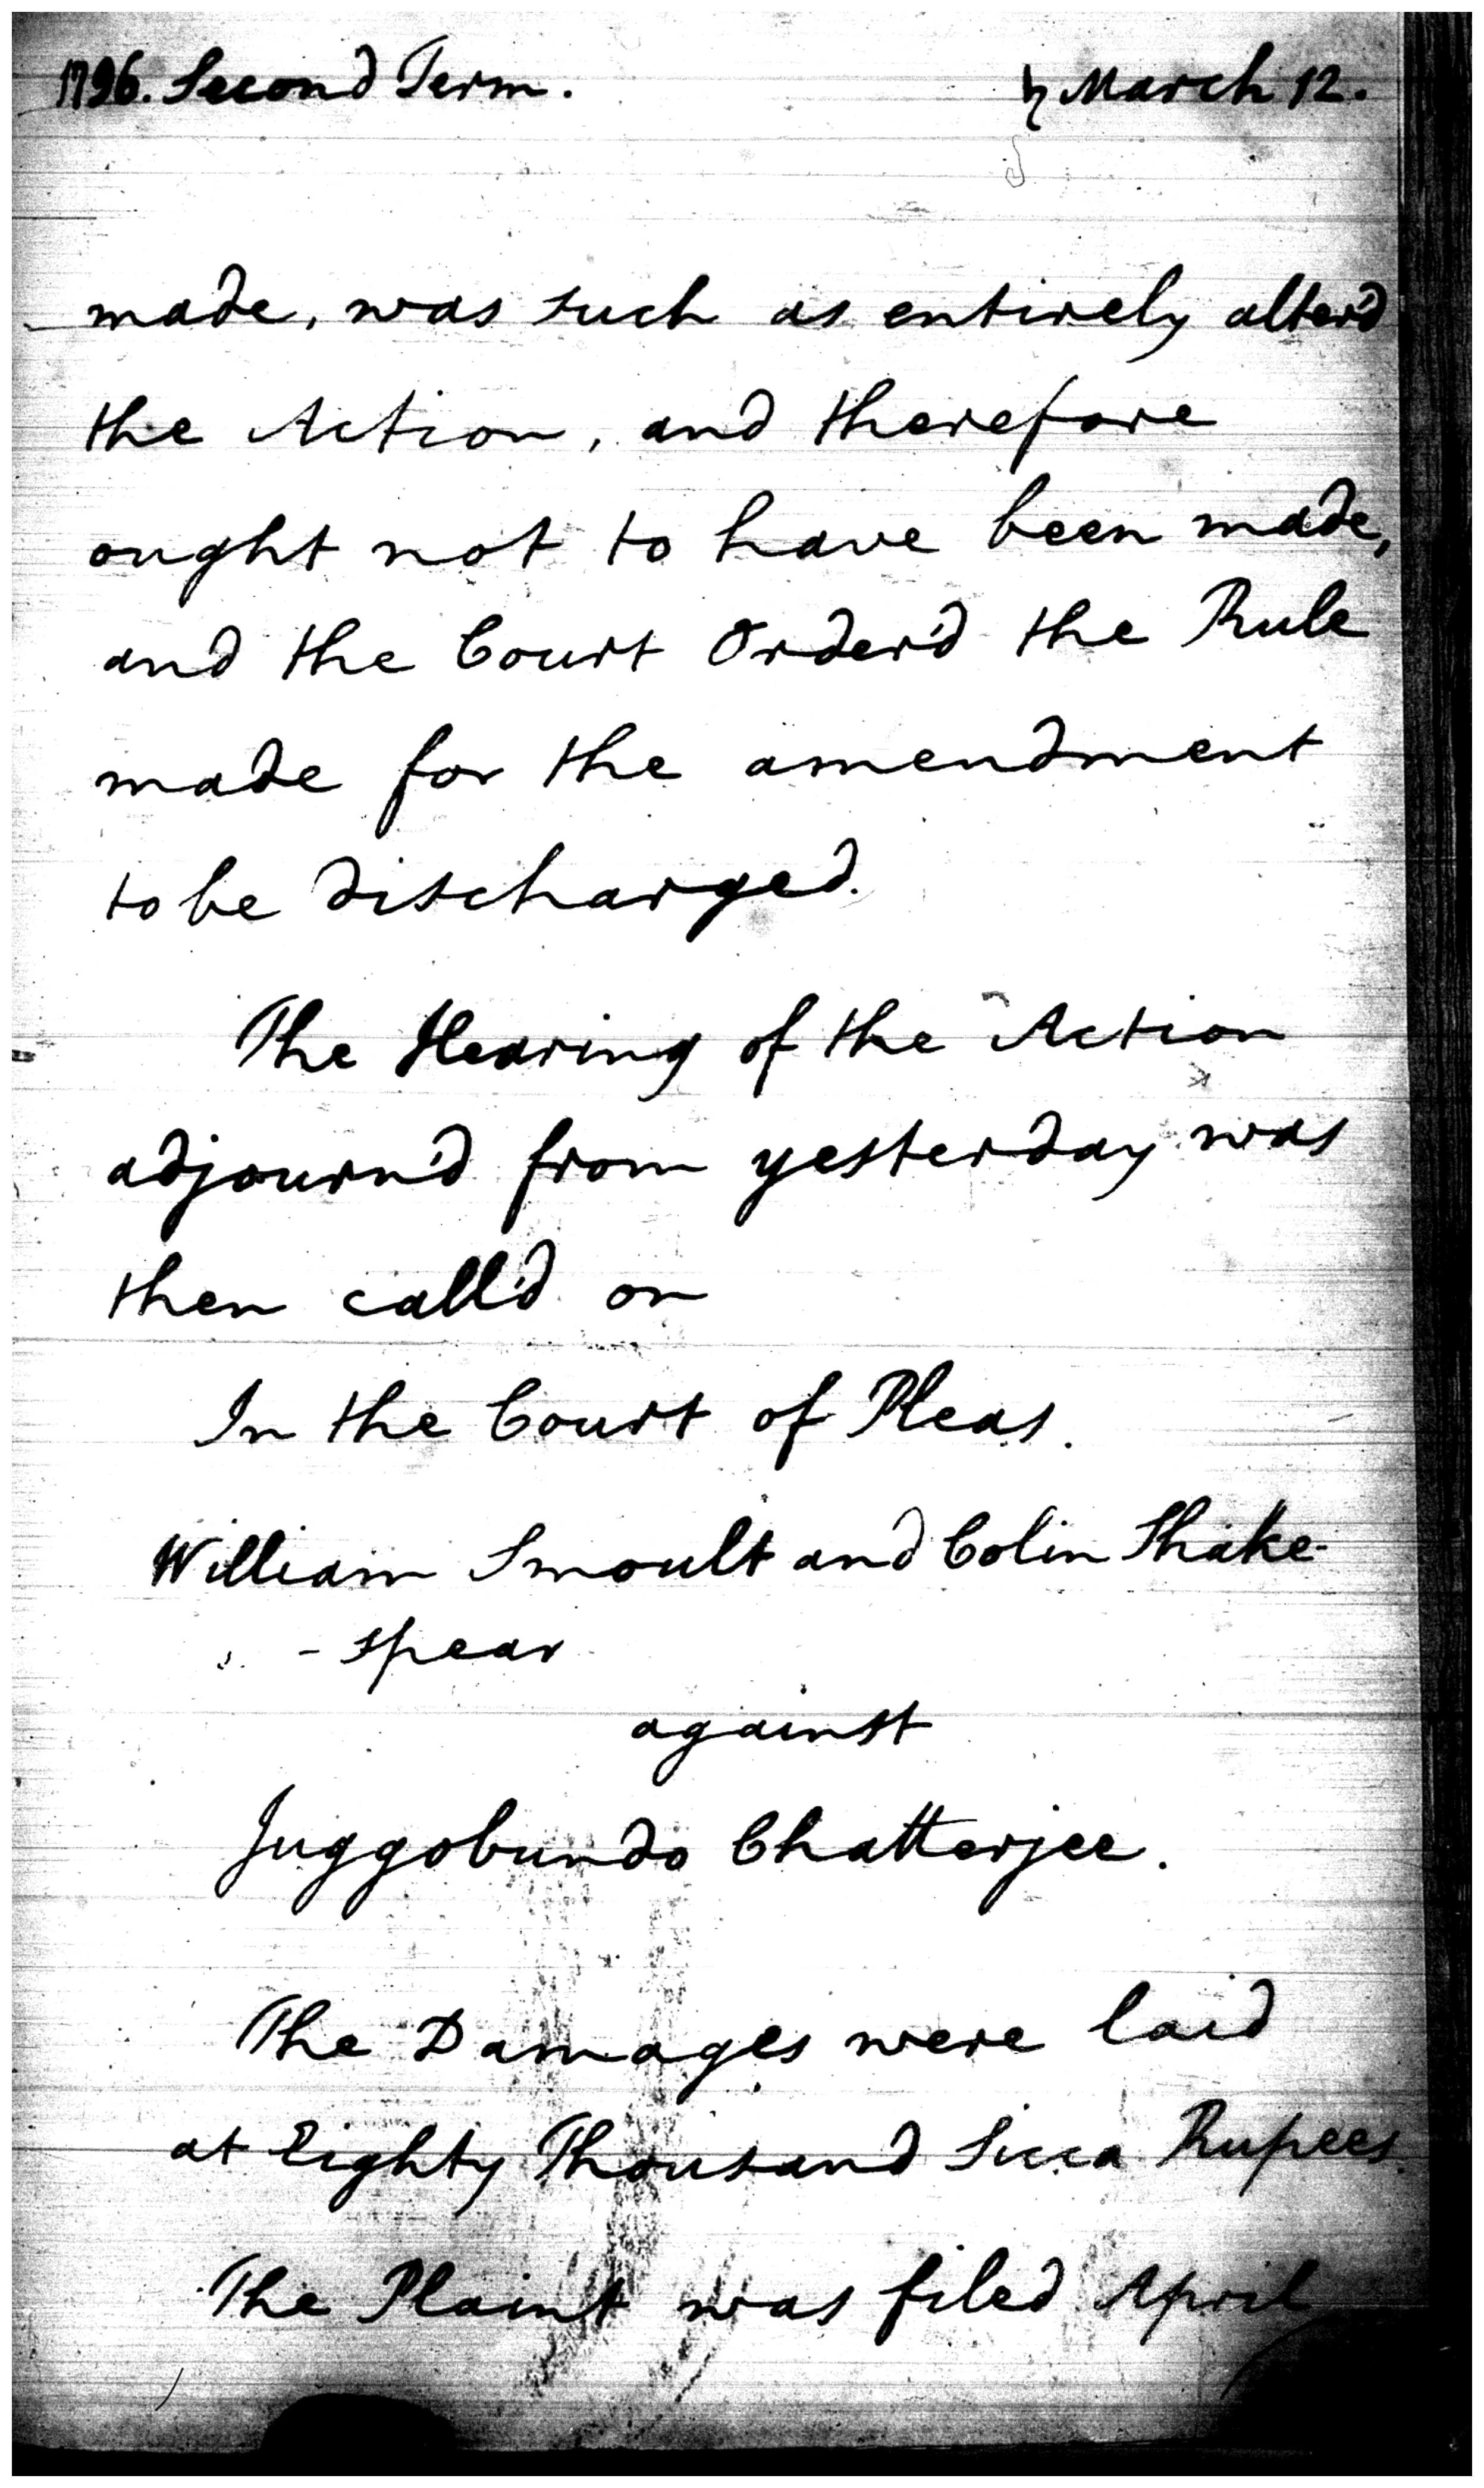 1796. Second Term. ♄ March 12.
made, was such as entirely alter'd
the Action, and therefore
ought not to have been made,
and the Court Order'd the Rule
made for the amendment
to be discharged.
The Hearing of the Action
adjourn'd from yesterday was
then call'd on
In the Court of Pleas.
William Smoult and Colin Shake-
-spear
against
Juggobundo Chatterjee.
The Damages were laid
at Eighty Thousand Sicca Rupees.
The Plaint was filed April